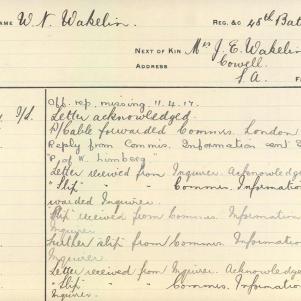 NAME W. N. Wakelin. REG. &C 48th Bat
NEXT OF KIN Mrs J. E. Wakelin
ADDRESS Cowell
S.A.
Off. rep. missing 11.4.17.
Letter acknowledged.
D/Cable forwarded Commis. London
Reply from Commis. Information sent
"P. of W. Limberg"
Letter received from Inquirer. Acknowledge
"Slip" " " Commis. Information
warded Inquirer.
Slip received from Commis. Information
Inquirer.
Further slip from Commis. Information
Inquirer
Letter received from Inquirer. Acknowledged
"Slip" " " Commis. Information
Inquirer.